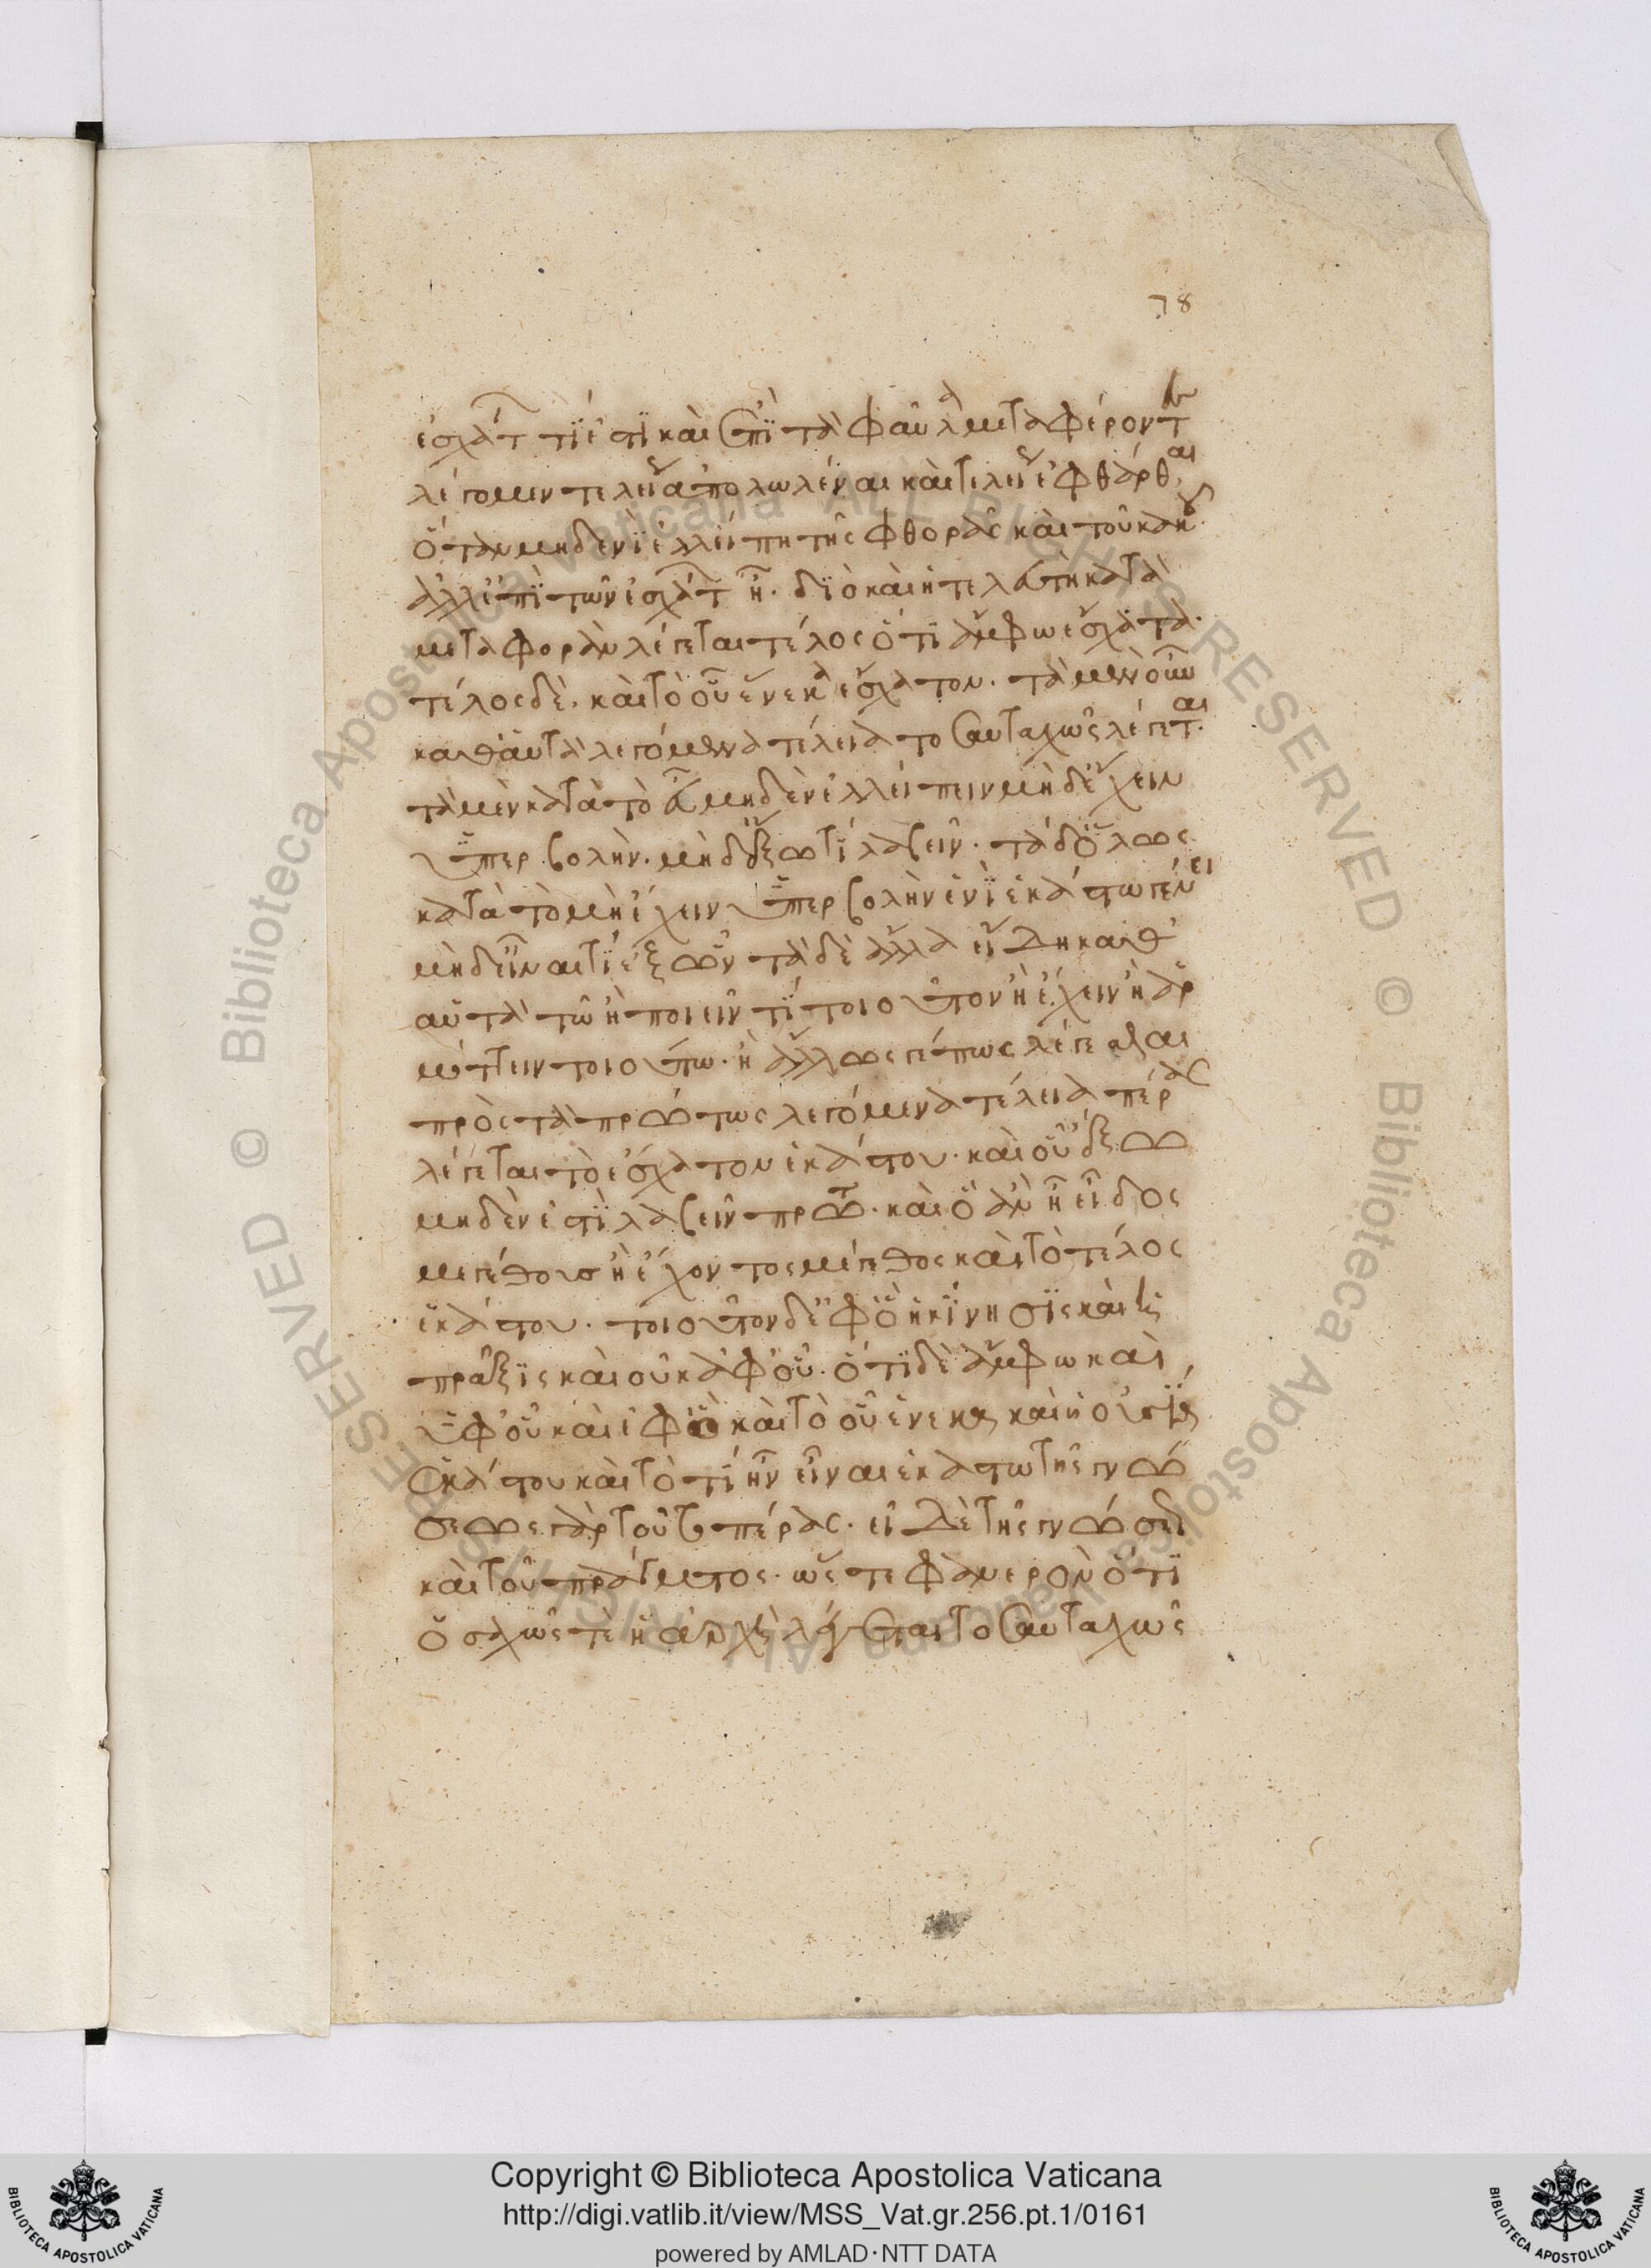 78
ἐσχάτων τί ἐστι καὶ ἐπὶ τὰ φαῦλα μεταφέροντες
λέγομεν τελείως ἀπολωλέναι καὶ τελείως ἐφθάρθαι
ὅταν μηδὲν ἐλλείπη τῆς φθορᾶς καὶ τοῦ κακοῦ
ἀλλ' ἐπὶ τῶν ἐσχάτων ἦ. διὸ καὶ ἡ τελευτὴ κατὰ
μεταφορὰν λέγεται τέλος ὅτι ἄμφω ἔσχατα.
τέλος δὲ. καὶ τὸ οὗ ἕνεκα ἔσχατον. τὰ μὲν οὖν
καθ' αὑτὰ λεγόμενα τέλεια τοσαυταχῶς λέγεται.
τὰ μὲν κατὰ τὸ εὖ μηδὲν ἐλλείπειν μὴδ' ἔχειν
ὑπερβολὴν. μὴδ' ἔξω τὶ λαβεῖν. τὰ δ' ὅλως
κατὰ τὸ μὴ ἔχειν ὑπερβολὴν ἐν ἑκάστω γένει
μὴδ' εἶναι τὶ ἔξω ὂν τὰ δὲ ἄλλα εἴδη καθ'
αὐτὰ τῶ ἢ ποιεῖν τὶ τοιοῦτον ἢ ἔχειν ἢ ἁρ
μόττειν τοιούτω. ἢ ἄλλως γέ πως λέγεσθαι
πρὸς τὰ πρώτως λεγόμενα τέλεια πέρας
λέγεται τὸ ἔσχατον ἑκάστου. καὶ οὗ ἔξω
μηδὲν ἐστὶ λαβεῖν πρῶτ. καὶ ὃ ἂν ἦ εἶδος
μεγέθους ἢ ἔχοντος μέγεθος καὶ τὸ τέλος
ἑκάστου. τοιοῦτον δ' ἐφ' ὃ ἡ κίνησις καὶ ἡ
πρᾶξις καὶ οὐκ ἀφ' οὗ. ὅτι δὲ ἄμφω καὶ
ἀφ' οὗ καὶ ἐφ' ὃ καὶ τὸ οὗ ἕνεκα καὶ ἡ οὐσία
ἑκάστου καὶ τὸ τί ἦν εἶναι ἑκάστω τῆς γνώ
σεως γὰρ τοῦτο πέρας. εἰ δὲ τῆς γνώσεως
καὶ τοῦ πράγματος. ὥστε φανερὸν ὅτι
ὁσαχῶς τὲ ἡ ἀρχὴ λέγεται τοσαυταχῶς
Copyright © Biblioteca Apostolica Vaticana
http://digi.vatlib.it/view/MSS_Vat.gr.256.pt.1/0161
powered by AMLAD·NTT DATA